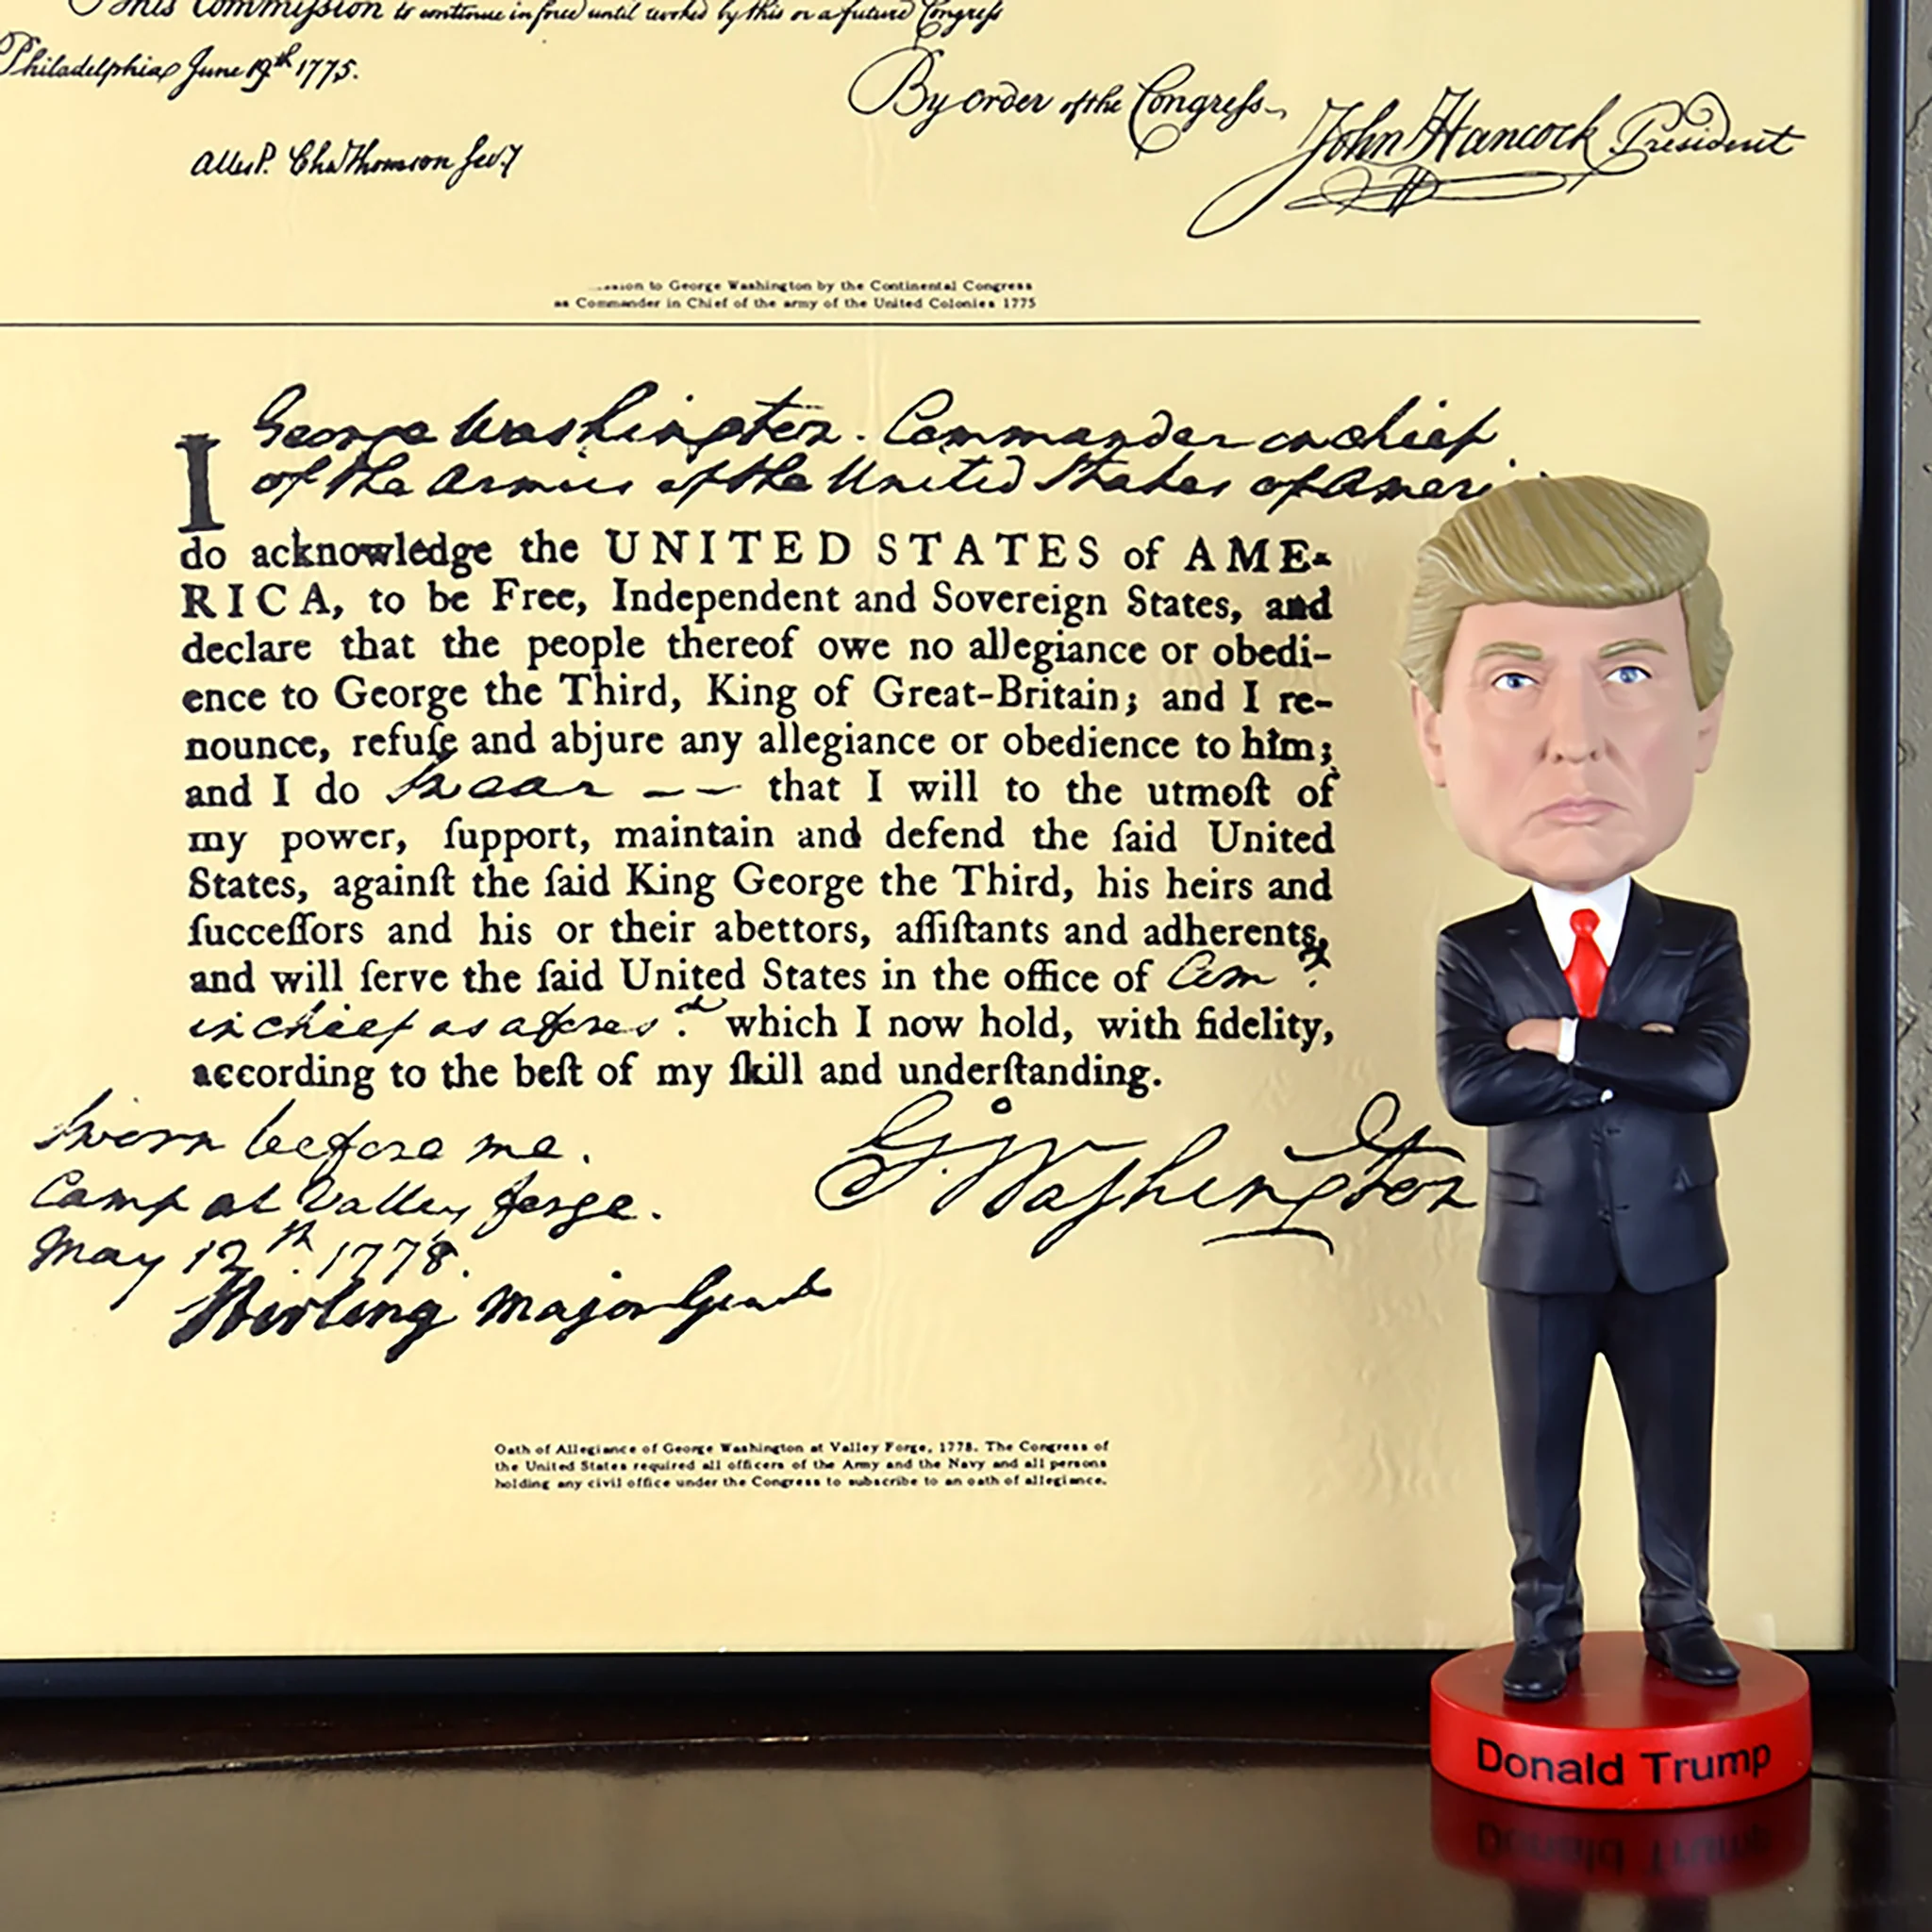 This Commiſsion to continue in force until revoked by this or a future Congreſs
Philadelphia June 19th 1775.
By order of the Congreſs
John Hancock President
Attest. Cha Thomson Secy
to George Washington by the Continental Congress
as Commander in Chief of the army of the United Colonies 1775
I George Washington. Commander in chief
of the Armies of the United States of Ameri
do acknowledge the UNITED STATES of AME-
RICA, to be Free, Independent and Sovereign States, and
declare that the people thereof owe no allegiance or obedi-
ence to George the Third, King of Great-Britain; and I re-
nounce, refuſe and abjure any allegiance or obedience to him;
and I do swear — — that I will to the utmoſt of
my power, ſupport, maintain and defend the ſaid United
States, againſt the ſaid King George the Third, his heirs and
ſucceſſors and his or their abettors, aſſiſtants and adherents,
and will ſerve the ſaid United States in the office of Com.r
in chief as afores.d which I now hold, with fidelity,
according to the beſt of my ſkill and underſtanding.
Sworn before me.
Camp at Valley forge.
May 12th. 1778.
Stirling Major Genl
G. Washington
Oath of Allegiance of George Washington at Valley Forge, 1778. The Congress of
the United States required all officers of the Army and the Navy and all persons
holding any civil office under the Congress to subscribe to an oath of allegiance.
Donald Trump